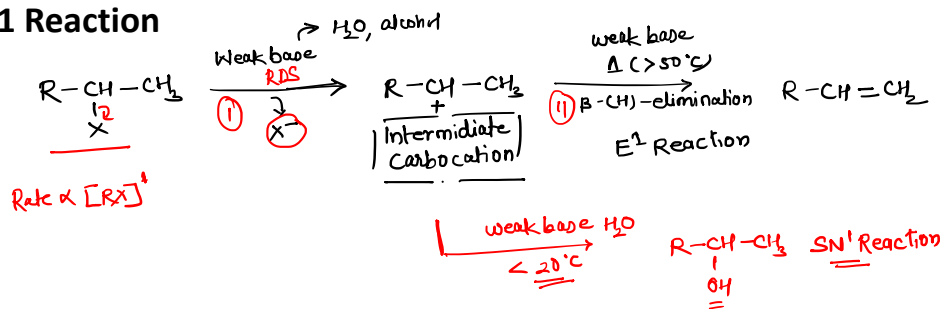 1 Reaction
→ H₂O, alcohol
Weak base
RDS
R-CH-CH₃
X
I
X⁻
R-CH-CH₃
+
Intermidiate
Carbocation
weak base
Δ (>50°C)
II β-(H)-elimination
E¹ Reaction
R-CH=CH₂
Rate ∝ [RX]¹
weak base H₂O
< 20°C
R-CH-CH₃
OH
SN¹ Reaction